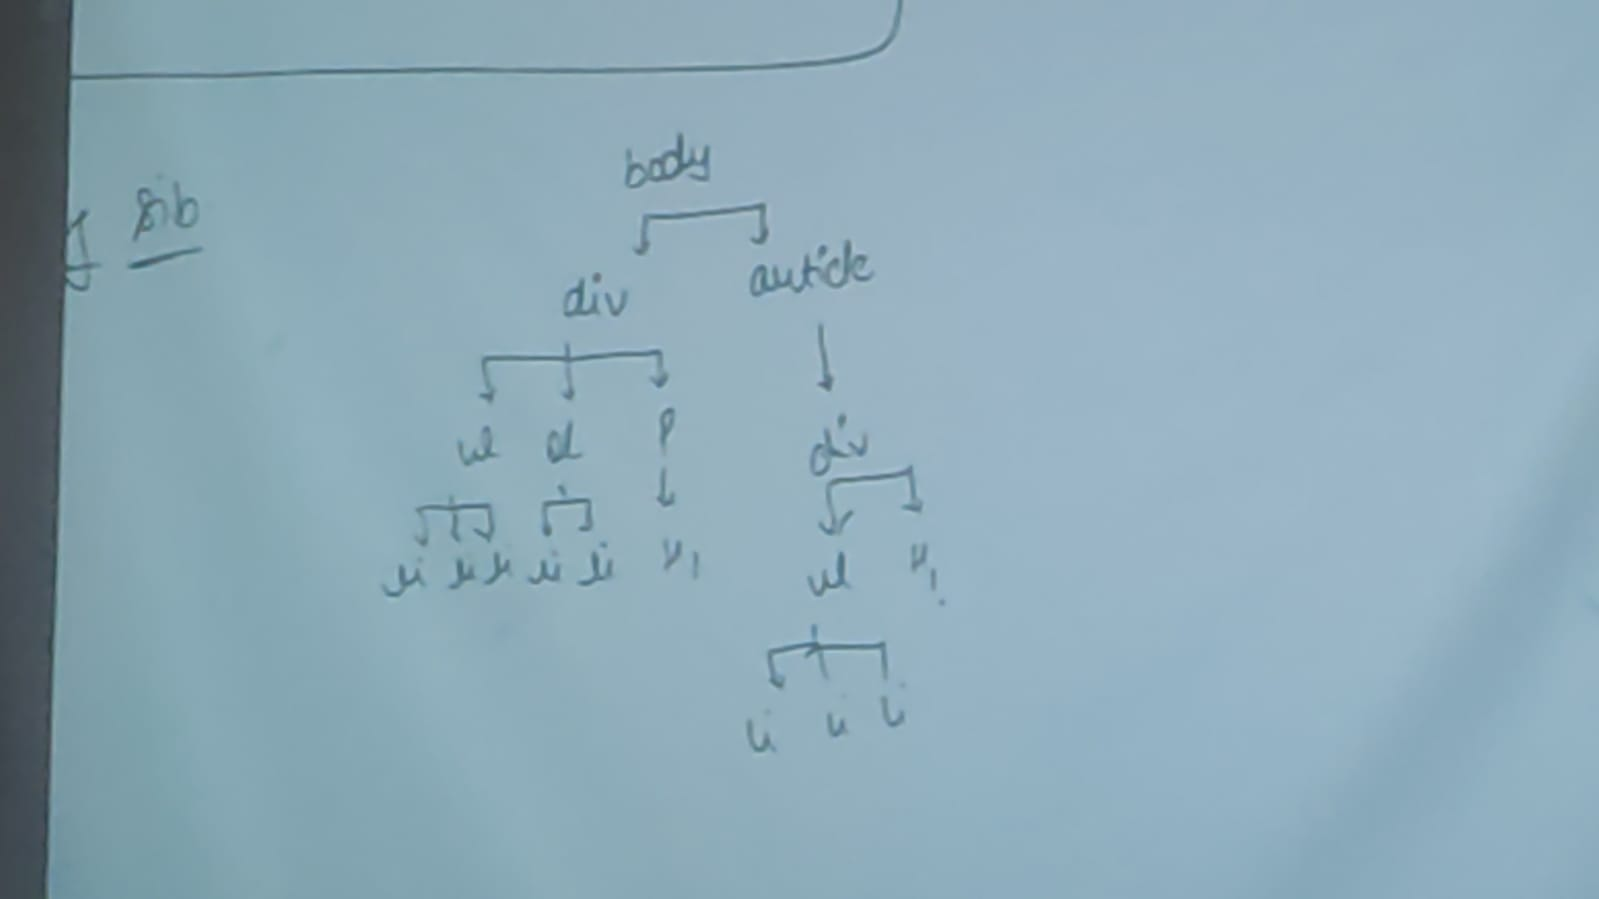 body
sib
div article
ul ol p div
li li li li li H1 ul H1
li li li